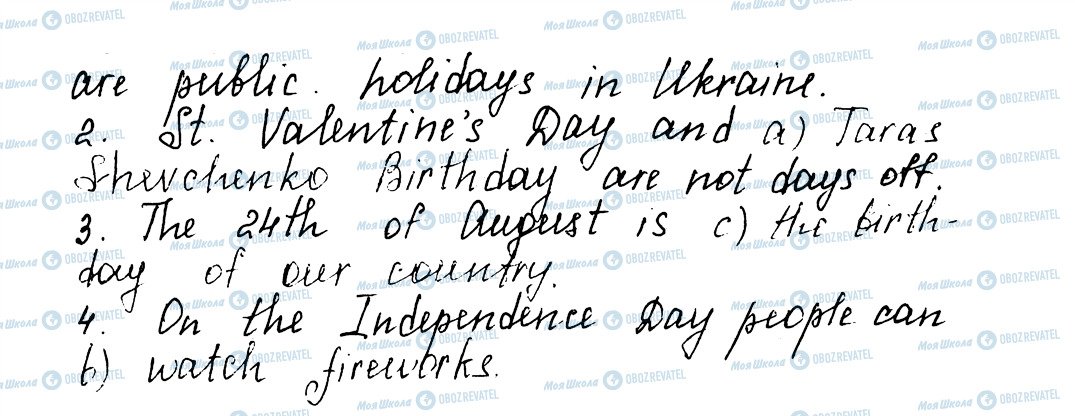 are public. holidays in Ukraine.
2. St. Valentine's Day and a) Taras
Shevchenko Birthday are not days off.
3. The 24th of August is c) the birth-
day of our country.
4. On the Independence Day people can
b) watch fireworks.